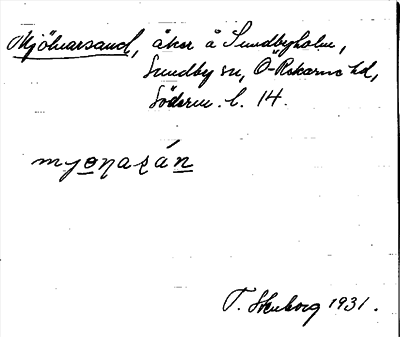 Mjölnarsand, åker å Sundbyholm,
Sundby sn, Ö-Rekarne hd,
Söderm. l. 14.
myo̲nasán̲
T. 1931.